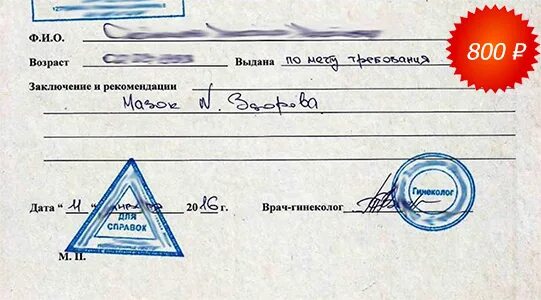 800 ₽
Ф.И.О.
Возраст Выдана по месту требования
Заключение и рекомендации
Мазок N. Здорова
Дата "11" 2016 г. Врач-гинеколог Гинеколог
ДЛЯ
СПРАВОК
М. П.